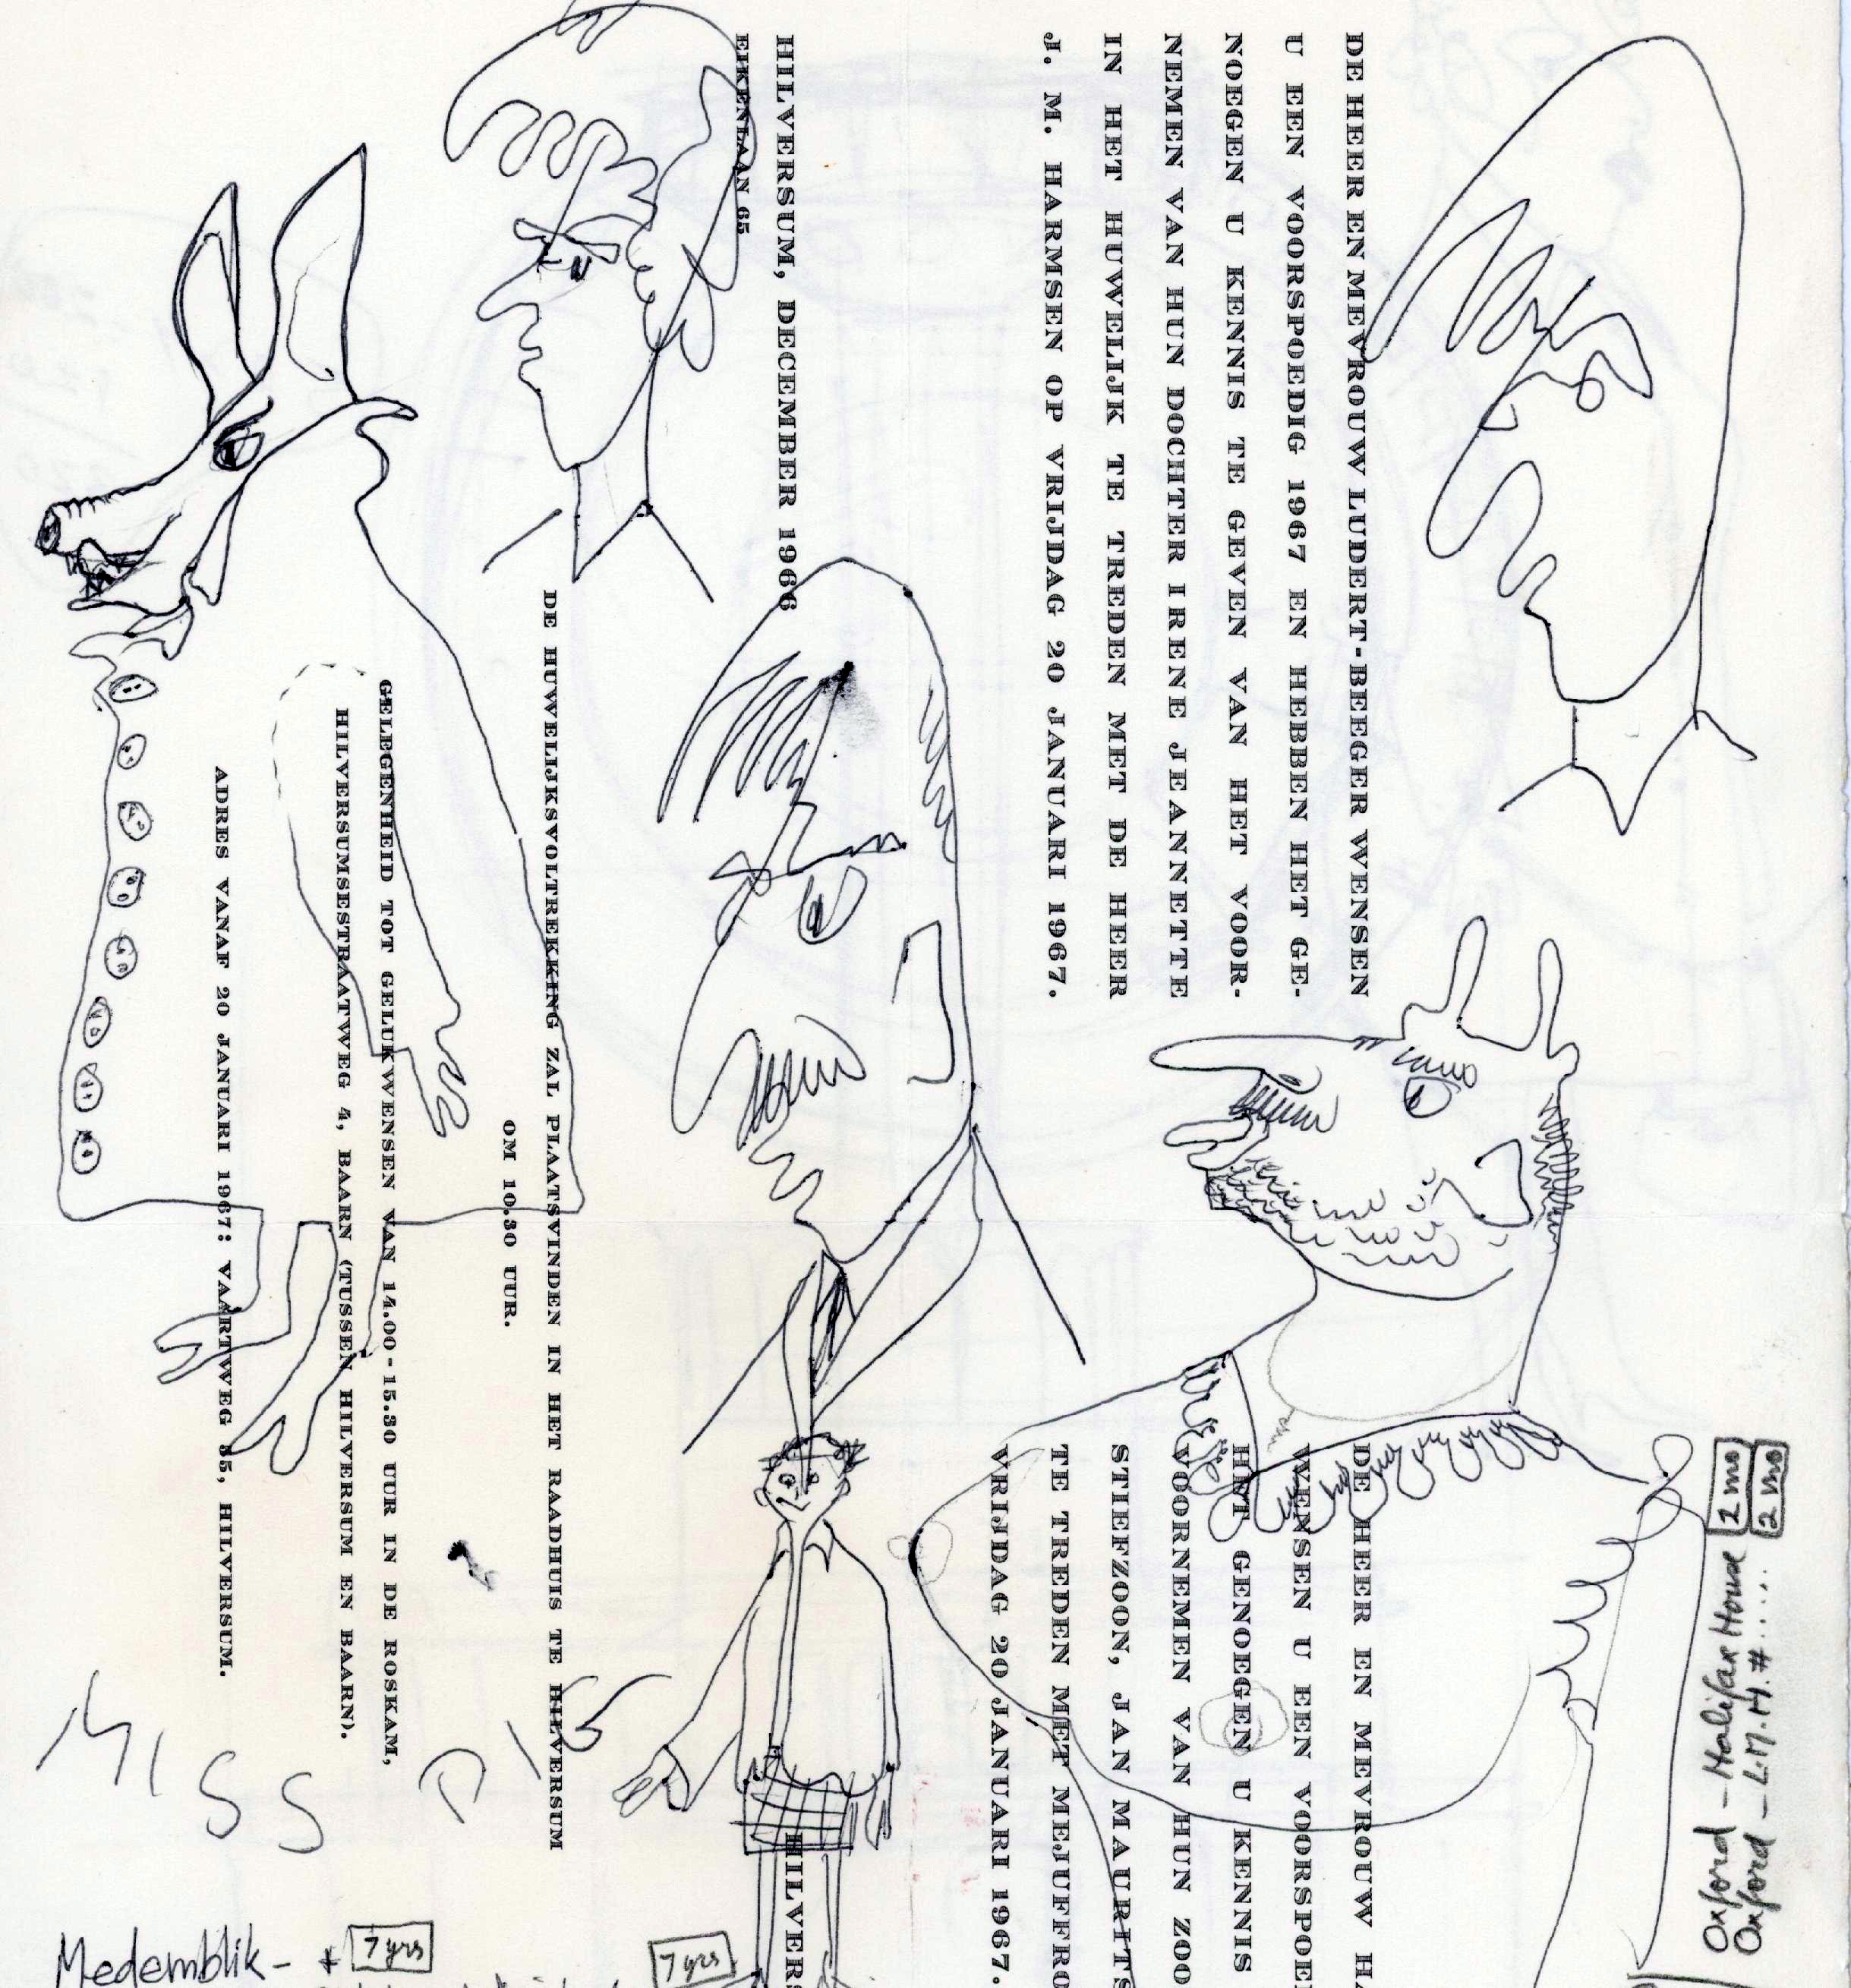 DE HEER EN MEVROUW LUDERT-BEEGER WENSEN
U EEN VOORSPOEDIG 1967 EN HEBBEN HET GE-
NOEGEN U KENNIS TE GEVEN VAN HET VOOR-
NEMEN VAN HUN DOCHTER IRENE JEANNETTE
IN HET HUWELIJK TE TREDEN MET DE HEER
J. M. HARMSEN OP VRIJDAG 20 JANUARI 1967.
HILVERSUM, DECEMBER 1966
EIKENLAAN 65
DE HEER EN MEVROUW HA
WENSEN U EEN VOORSPOE
HET GENOEGEN U KENNIS
VOORNEMEN VAN HUN ZOO
STIEFZOON, JAN MAURITS
TE TREDEN MET MEJUFFRO
VRIJDAG 20 JANUARI 1967.
HILVERS
DE HUWELIJKSVOLTREKKING ZAL PLAATSVINDEN IN HET RAADHUIS TE HILVERSUM
OM 10.30 UUR.
GELEGENHEID TOT GELUKWENSEN VAN 14.00-15.30 UUR IN DE ROSKAM,
HILVERSUMSESTRAATWEG 4, BAARN (TUSSEN HILVERSUM EN BAARN).
ADRES VANAF 20 JANUARI 1967: VAARTWEG 35, HILVERSUM.
MISS PIG
Oxford - Halifax House 2 mo
Oxford - L.M.H. #...... 2 mo
Medemblik - + 7 yrs
7 yrs